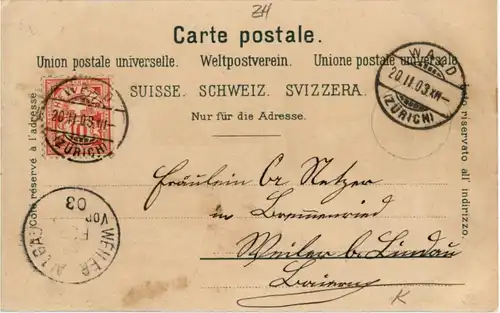 ZH
Carte postale.
Union postale universelle. Weltpostverein. Unione postale universale
SUISSE. SCHWEIZ. SVIZZERA.
Nur für die Adresse.
Côté réservé à l'adresse
lato riservato all' indirizzo.
WALD
20.II.03.XII-
(ZÜRICH)
20.II.03
(ZÜRICH)
10
WEILER ALLGÄU
Vor
03
Fräulein Cr. Netzer
in Bremenried
Weiler b. Lindau
Baiern
K